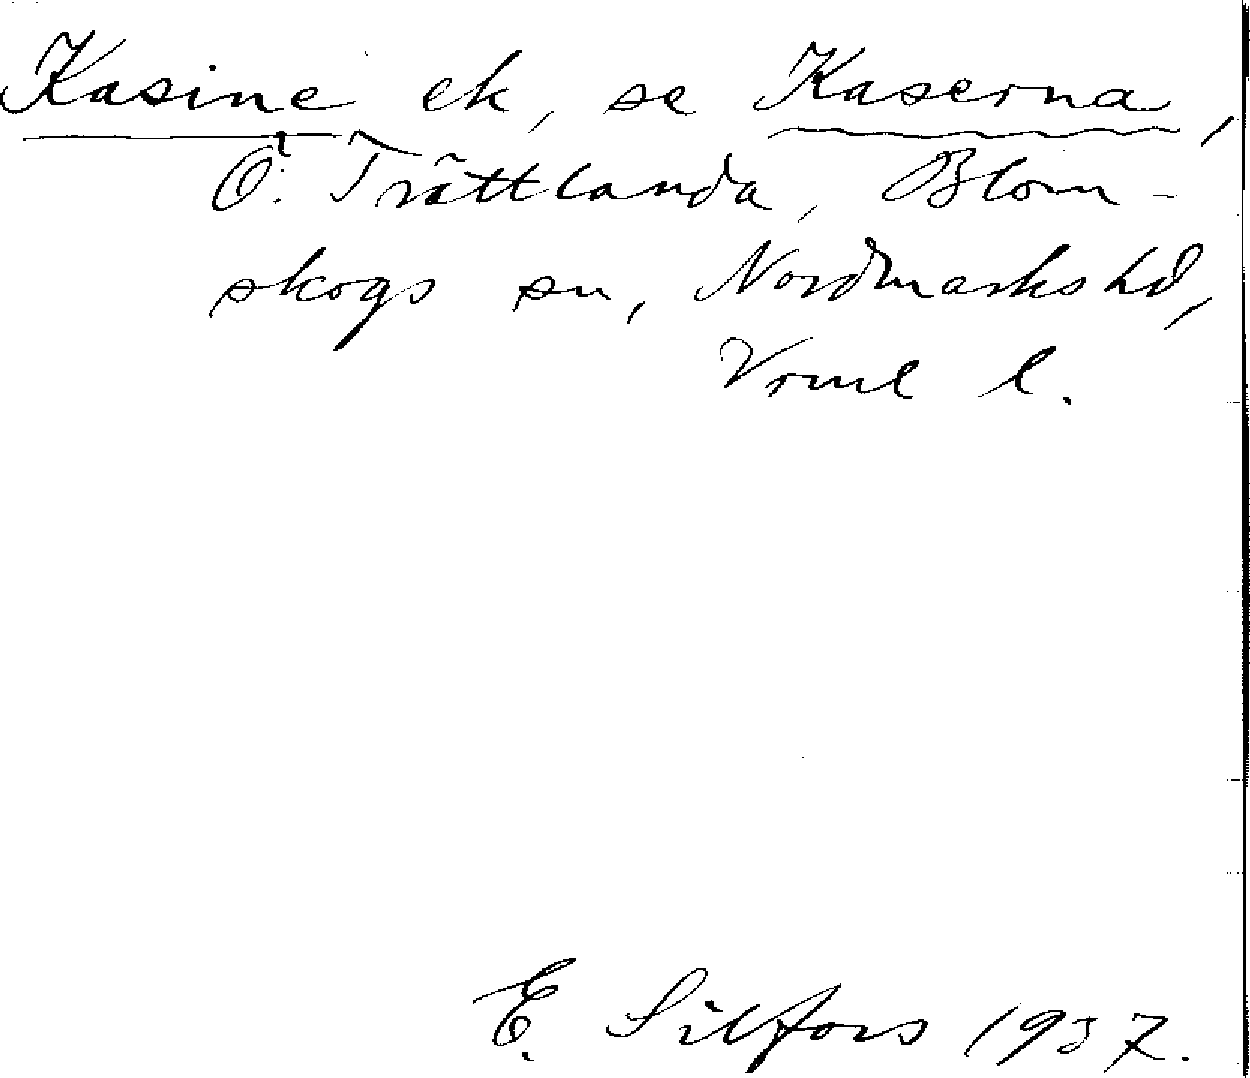 Kasine ek, se Kaserna,
Ö. Trättlanda, Blom-
skogs sn, Nordmarks hd,
Vrml l.
E. Silfors 1937.